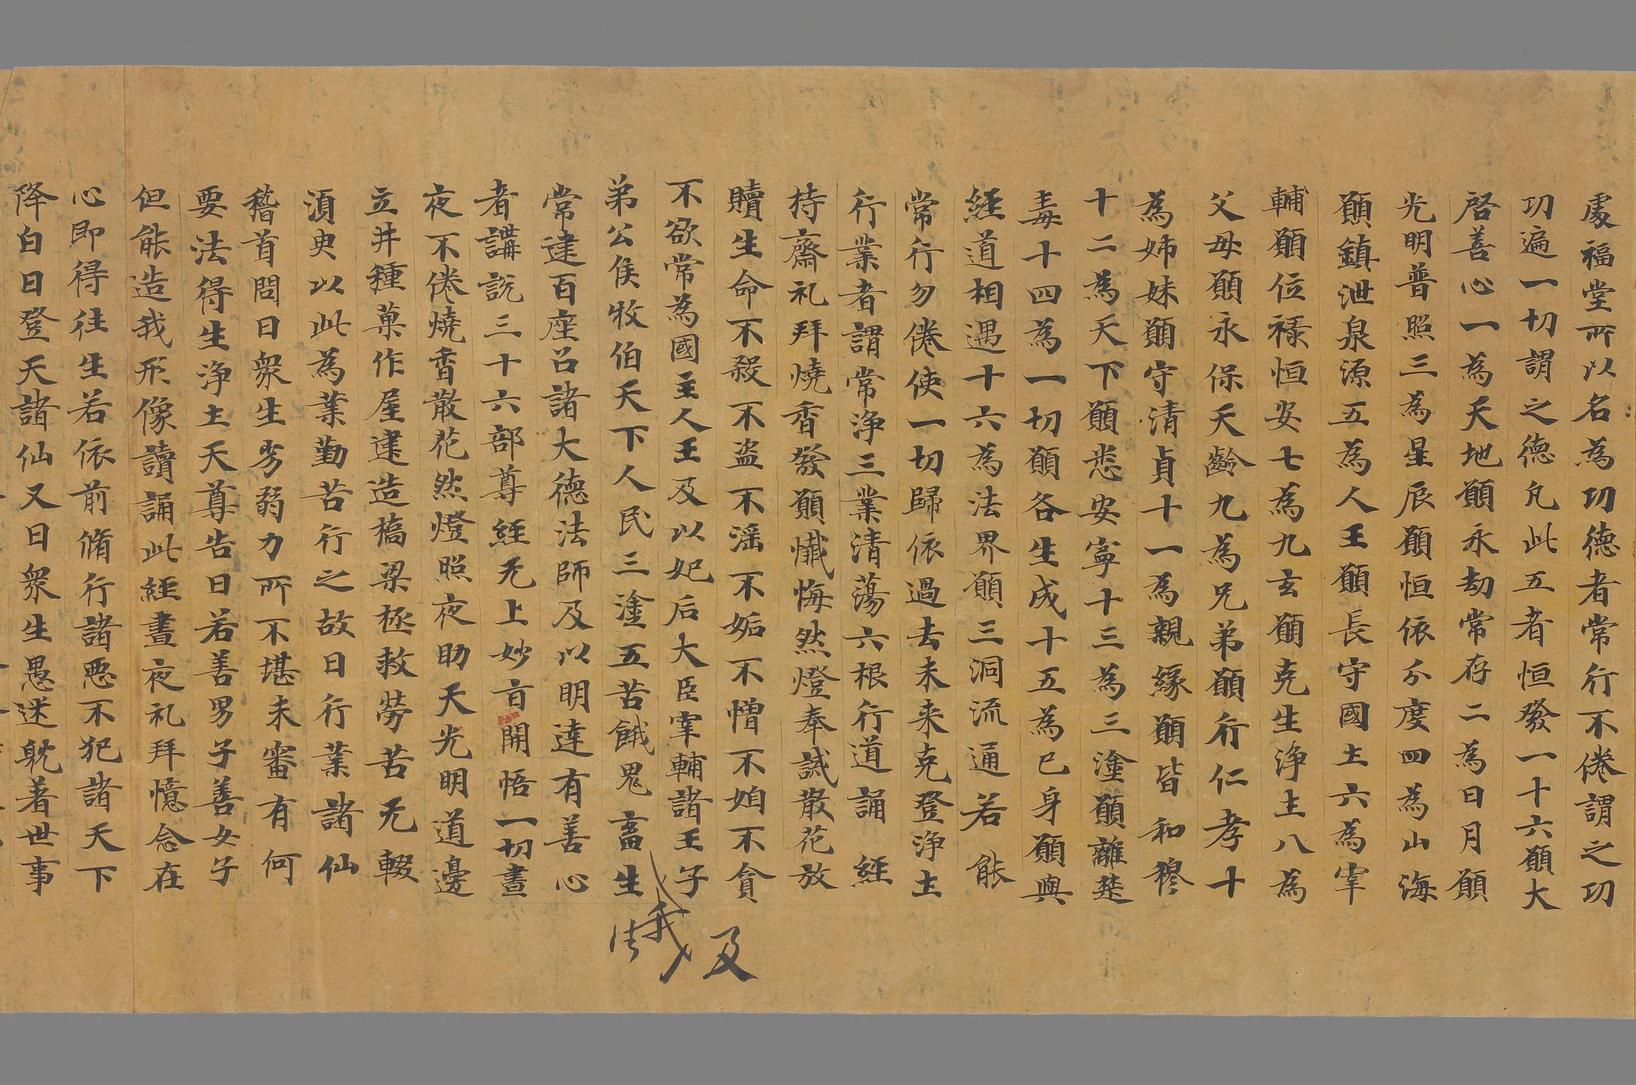 處福堂所以名為功德者常行不倦謂之功
功遍一切謂之德凡此五者恒發一十六願大
啓善心一為天地願永劫常存二為日月願
光明普照三為星辰願恒依分度四為山海
願鎮泄泉源五為人王願長守國土六為宰
輔願位祿恒安七為九玄願克生淨土八為
父母願永保天齡九為兄弟願行仁孝十
為姊妹願守清貞十一為親緣願皆和穆
十二為天下願悉安寧十三為三塗願離楚
毒十四為一切願各生成十五為己身願與
經道相遇十六為法界願三洞流通若能
常行勿倦使一切歸依過去未来克登淨土
行業者謂常淨三業清蕩六根行道誦經
持齋礼拜燒香發願懴悔然燈奉誡散花放
贖生命不煞不盗不滛不妬不憎不姤不貪
不欲常為國主人王及以妃后大臣宰輔諸王子
弟公侯牧伯天下人民三塗五苦餓鬼畜生
常建百座召諸大德法師及以明達有善心
者講説三十六部尊經无上妙㫖開悟一切晝
夜不倦燒香散花然燈照夜助天光明道邊
立井種菓作屋建造橋梁拯救勞苦无輟
湏臾以此為業勤苦行之故曰行業諸仙
稽首問曰衆生劣弱力所不堪未審有何
要法得生淨土天尊告曰若善男子善女子
但能造我形像讀誦此經晝夜礼拜憶念在
心即得往生若依前脩行諸惡不犯諸天下
降白日登天諸仙又曰衆生愚迷躭著世事
及
我